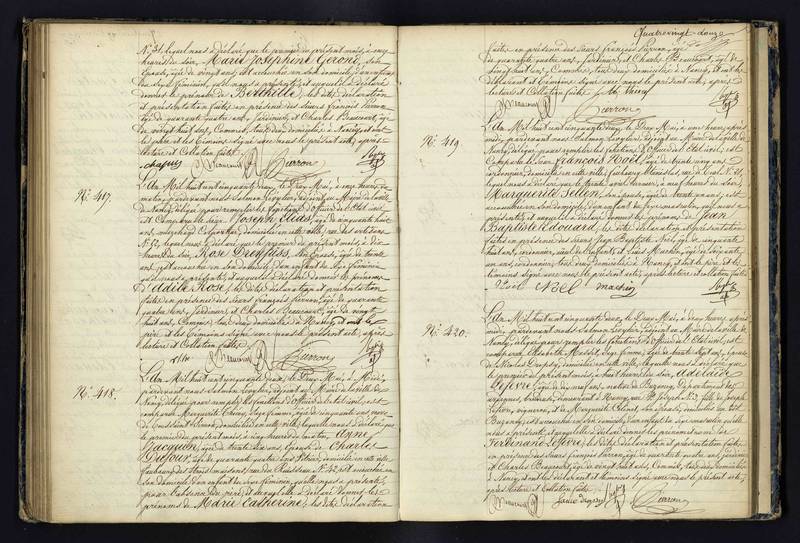 N° 31, lequel nous a déclaré que le premier du présent mois, à onze
heures du soir, Marie Joséphine Gérone, son
épouse, âgée de vingt ans, est accouchée en son domicile, d'un enfant
du sexe féminin, qu'il nous a présenté et auquel il a déclaré
donner le prénom de Berthille, les dites déclaration
et présentation faites en présence des Sieurs françois Pierron,
âgé de quarante quatre ans, Jardinier, et Charles Beaucourt, âgé
de vingt huit ans, Commis, tous deux domiciliés à Nancy, et ont
le père et les témoins signé avec nous le présent acte, après
lecture et Collation faite.
Pierron
N° 417.
L'An Mil huit cent cinquante deux, le Deux Mai, à onze heures du
matin, pardevant nous Salmon Lévylier, adjoint au Maire de la ville
de Nancy, délégué pour remplir les fonctions d'Officier de l'état civil,
est Comparu le Sieur Joseph Elias, âgé de cinquante huit
ans, marchand Colporteur, domicilié en cette ville, rue des artisans
N° 62, lequel nous a déclaré que le premier du présent mois, à dix
heures du soir, Rose Dreyfuss, son épouse, âgée de trente
ans, est accouchée en son domicile d'un enfant du sexe féminin
qu'il nous a présenté, et auquel il a déclaré donner les prénoms
d'Adile Rose, les dites déclaration et présentation
faites en présence des Sieurs françois Pierron, âgé de quarante
quatre ans, Jardinier, et Charles Beaucourt, âgé de vingt
huit ans, Commis, tous deux domiciliés à Nancy, et ont le
père et les témoins signé avec nous le présent acte, après
lecture et Collation faite.
Pierron
N° 418.
L'An Mil huit cent cinquante deux, le Deux Mai, à Midi,
pardevant nous Salmon Lévylier, adjoint au Maire de la ville de
Nancy, délégué pour remplir les fonctions d'Officier de l'état civil, est
comparue Marguerite, Sage femme, âgée de cinquante ans, veuve
de, domiciliée en cette ville, laquelle nous a déclaré que
le premier du présent mois, à cinq heures du matin, Anne
Jacquin, âgée de trente six ans, épouse de Charles
Dufour, âgé de quarante quatre ans, domicilié en cette ville,
faubourg des trois maisons, rue du Ruisseau N° 42, est accouchée en
son domicile d'un enfant du sexe féminin, qu'elle nous a présenté,
pour l'absence du père, et auquel elle a déclaré donner les
prénoms de Marie Catherine, les dites déclaration
Quatrevingt-douze
faites en présence des Sieurs françois Pierron, âgé
de quarante quatre ans, Jardinier, et Charles Beaucourt, âgé de
vingt huit ans, Commis, tous deux domiciliés à Nancy, et ont les
déclarant et témoins signé avec nous le présent acte, après
lecture et Collation faite.
Pierron
N° 419.
L'An Mil huit cent cinquante deux, le Deux Mai, à une heure après
midi, pardevant nous Salmon Lévylier, adjoint au Maire de la ville
de Nancy, délégué pour remplir les fonctions d'Officier de l'état civil, est
Comparu le Sieur François Noël, âgé de vingt cinq ans,
cordonnier, domicilié en cette ville, faubourg Stanislas, N° 21,
lequel nous a déclaré que le trente avril dernier, à neuf heures du soir,
Marguerite Sellon, son épouse, âgée de trente un ans, est
accouchée en son domicile, d'un enfant du sexe masculin, qu'il nous a
présenté, et auquel il a déclaré donner les prénoms de Jean
Baptiste Edouard, les dites déclaration et présentation
faites en présence des Sieurs Jean Baptiste Noël, âgé de cinquante
huit ans, cordonnier, aïeul de l'enfant, et Louis Machin, âgé de soixante
un ans, cordonnier, tous deux domiciliés à Nancy, et ont le père et les
témoins signé avec nous le présent acte, après lecture et Collation faite.
Noël Noël machin
N° 420.
L'An Mil huit cent cinquante deux, le Deux Mai, à deux heures après
midi, pardevant nous Salmon Lévylier, adjoint au Maire de la ville de
Nancy, délégué pour remplir les fonctions d'Officier de l'état civil, est
comparue Elisabeth, Sage femme, âgée de trente sept ans, épouse
de Nicolas, domiciliée en cette ville, laquelle nous a déclaré que
le premier du présent mois, à huit heures du soir, Adélaïde
Lefèvre, âgée de ans, native de, département des
Vosges, demeurant à Nancy, rue St Joseph N° 3, fille de Joseph
Lefèvre, vigneron, et de Marguerite, son épouse, domiciliés au dit
, est accouchée en son domicile, d'un enfant du sexe masculin qu'elle
nous a présenté, et auquel elle a déclaré donner les prénoms de
Ferdinand Lefèvre, les dites déclaration et présentation faites
en présence des Sieurs françois Pierron, âgé de quarante quatre ans, Jardinier
et Charles Beaucourt, âgé de vingt huit ans, Commis, tous deux domiciliés
à Nancy, et ont les déclarant et témoins signé avec nous le présent acte,
après lecture et Collation faite.
Pierron